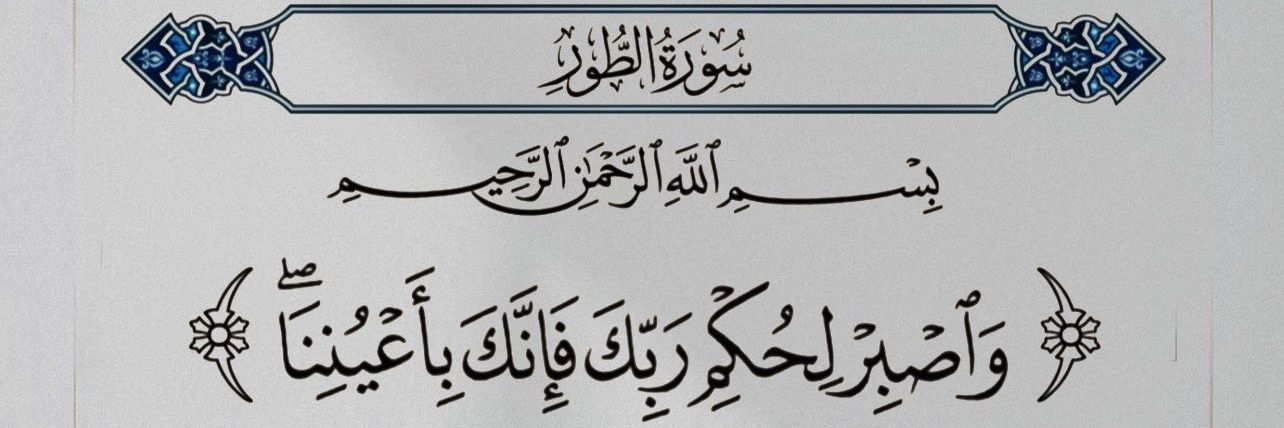 سُورَةُ الطُّورِ
بِسْمِ ٱللَّهِ ٱلرَّحْمَٰنِ ٱلرَّحِيمِ
﴿وَٱصْبِرْ لِحُكْمِ رَبِّكَ فَإِنَّكَ بِأَعْيُنِنَا ۖ﴾